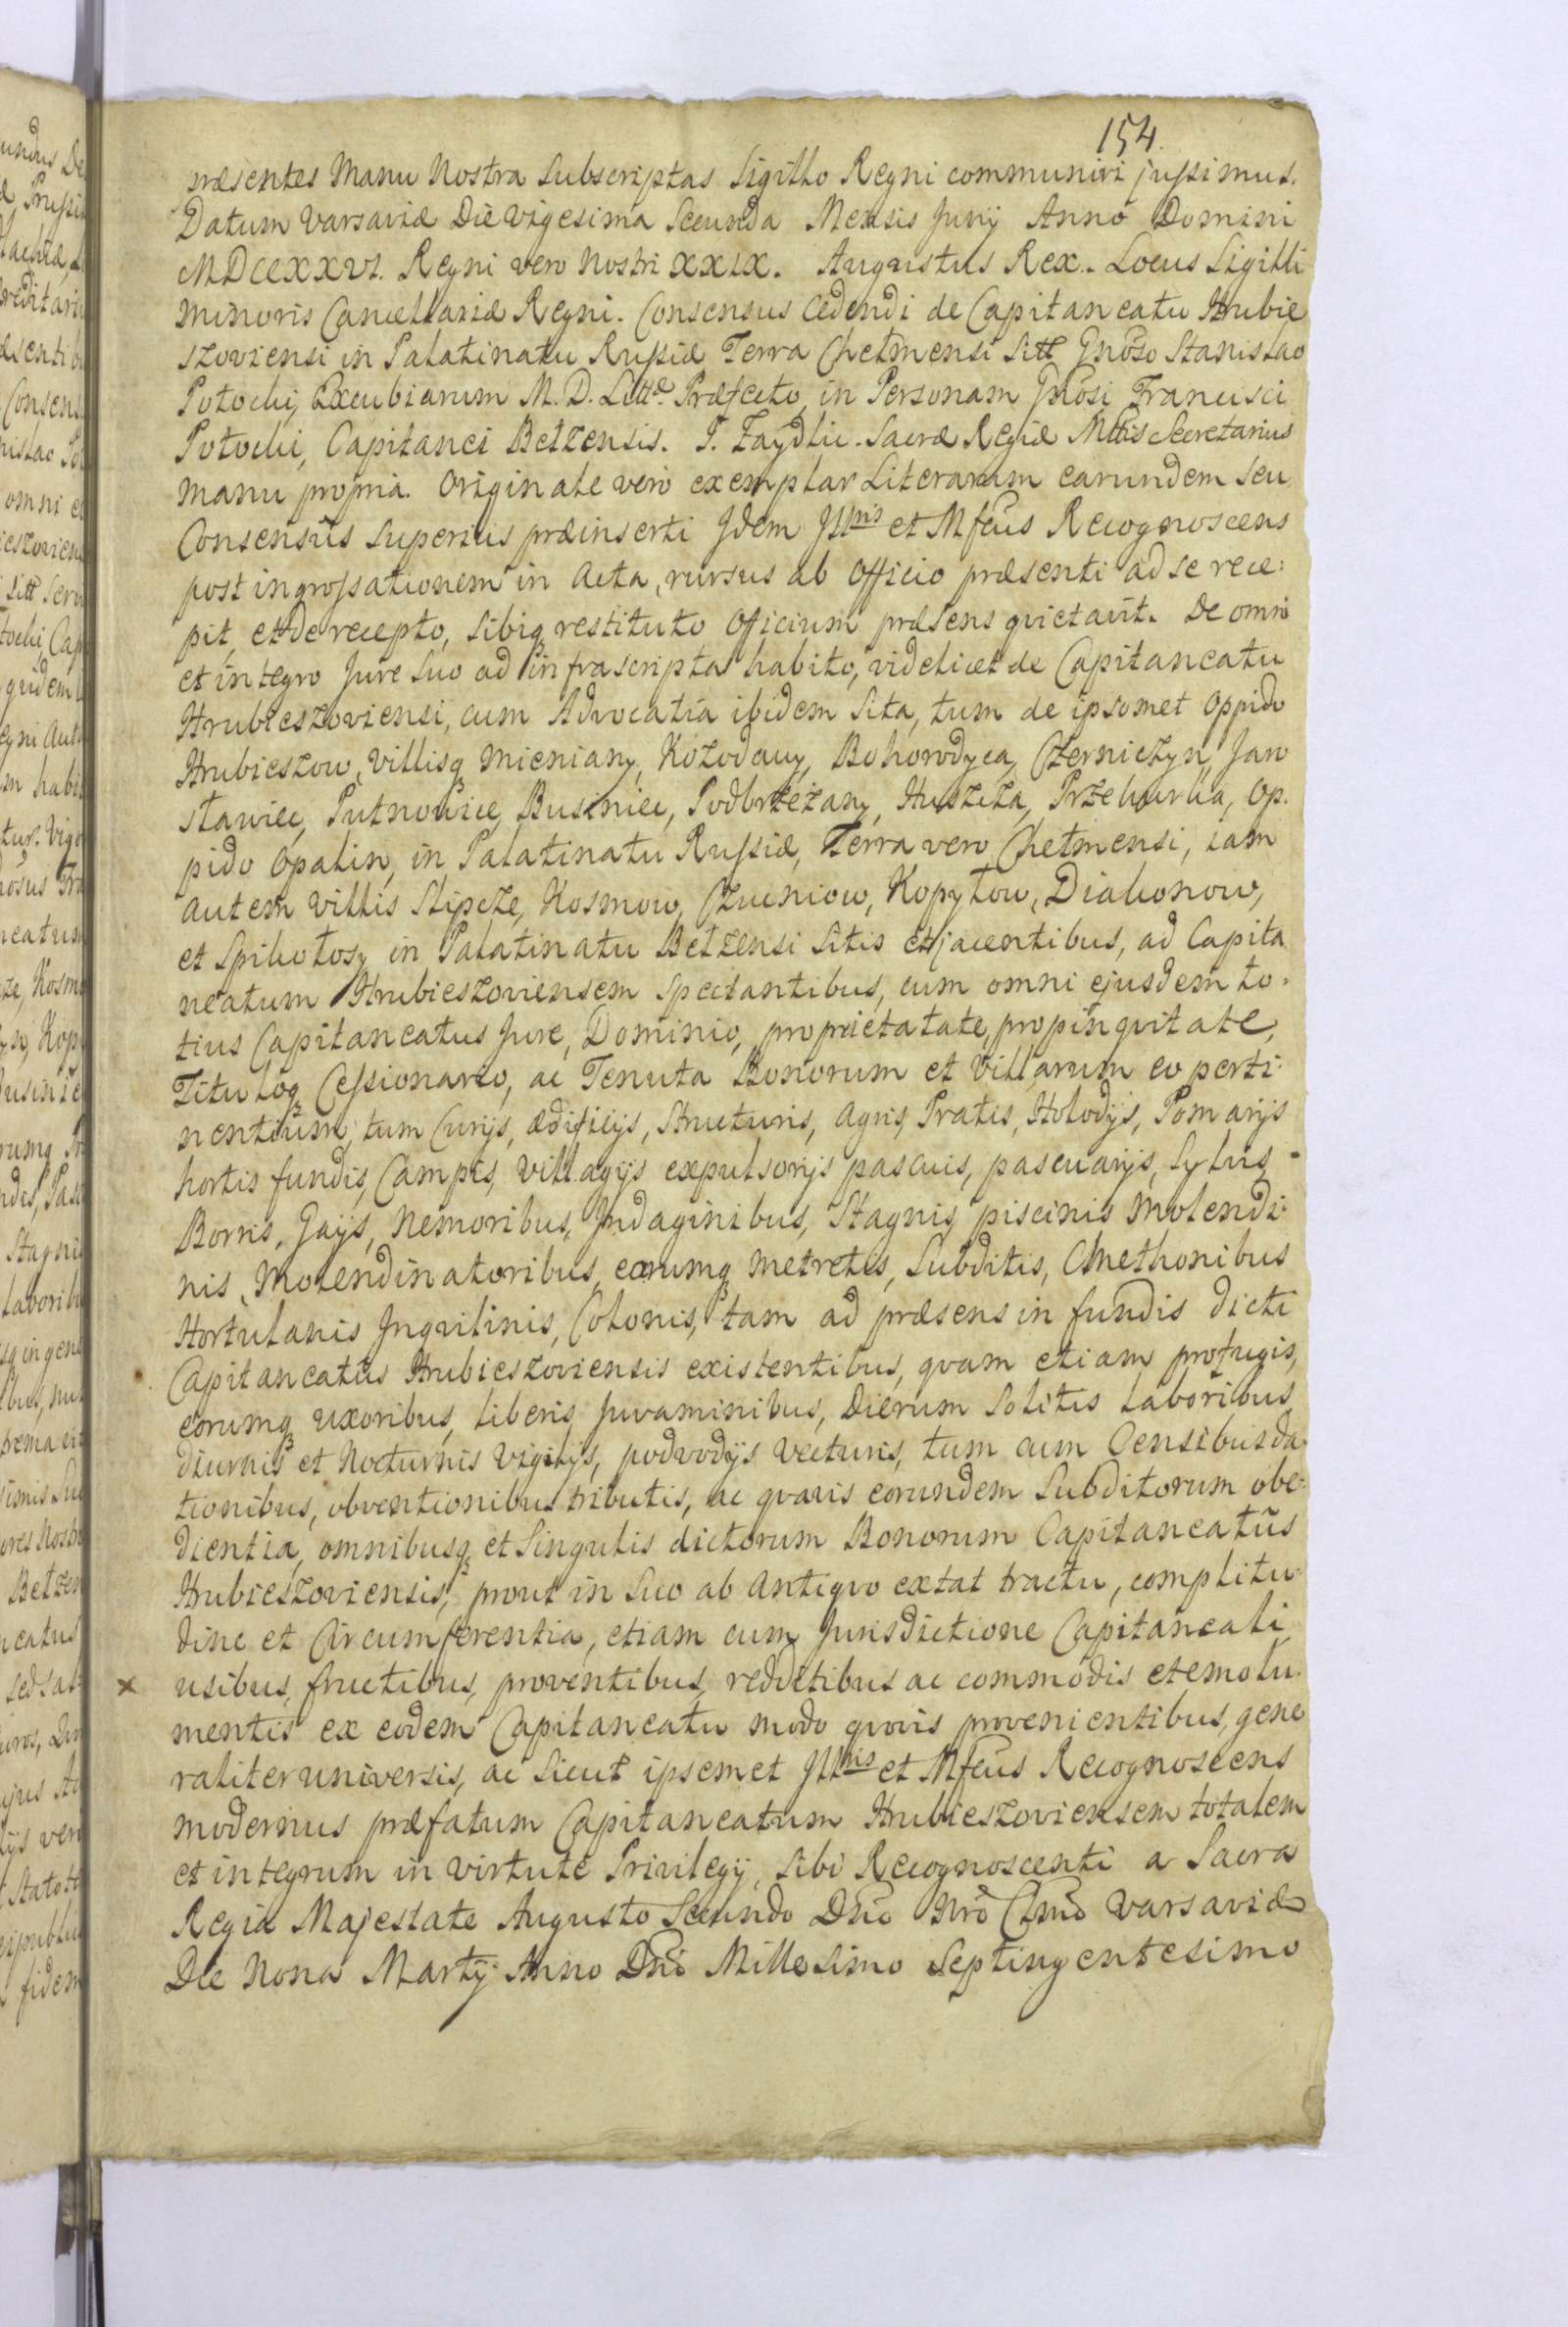 154.
præsentes Manu Nostra Subscriptas Sigillo Regni communiri jussimus.
Datum Varsaviæ Die Vigesima Secunda Mensis Junij Anno Domini
MDCCXXVI. Regni vero Nostri XXIX. Augustus Rex. Locus Sigilli
Minoris Cancellariæ Regni. Consensus Cedendi de Capitaneatu Hrubie
szoviensi in Palatinatu Russiæ Terra Chełmensi Sitt Gnõso Stanislao
Potocki, Excubiarum M. D. Littæ. Præfecto, in Personam Gnõsi Francisci
Potocki, Capitanei Bełzensis. P. Zaydlic. Sacræ Regiæ Mttis Secretarius
manu propria. Originale vero exemplar Literarum earundem seu
Consensûs superius præinserti Jdem Jllris et Mfcus Recognoscens
post ingrossationem in Acta, rursus ab Officio præsenti ad se rece:
pit, et de recepto, sibiq restituto Officium præsens qvietavit. De omni
et integro Jure Suo ad infrascripta habito, videlicet de Capitaneatu
Hrubieszoviensi, cum Advocatia ibidem Sita, tum de ipsomet Oppido
Hrubieszow, Villisq Mieniany, Kozodawy, Bohorodyca, Czerniczyn, Jan
sławiec, Putnowice, Businiec, Podbrzezany, Huszcza, Przehorka, Op.
pido Opalin, in Palatinatu Russiæ, Terra vero Chełmensi, iam
autem Villis Slipcze, Kosmow, Czucniow, Kopyłow, Diakonow,
et Spikołosy in Palatinatu Bełzensi Sitis et jacentibus, ad Capita
neatum Hrubieszoviensem Spectantibus, cum omni ejusdem to.
tius Capitaneatus Jure, Dominio, proprietatate, propinqvitate,
Tituloq Cessionario, ac Tenuta Bonorum et Villarum eo perti:
nentium, tum Curijs, ædificijs, Structuris, Agris, Pratis, Hołodijs, Pomarijs
hortis fundis, Campis, Villagijs expulsorijs pascuis, pascuarijs, Sylvis
Borris, Gajis, Nemoribus, Jndaginibus, Stagnis, piscinis Molendi:
nis, Molendinatoribus, earumq metretis, Subditis, Cmethonibus
Hortulanis Jnqvilinis, Colonis, tam ad præsens in fundis dicti
Capitaneatûs Hrubieszoviensis existentibus, qvam etiam profugis,
eorumq uxoribus, liberis, Juvaminibus, Dierum Solitis laboribus,
diurnis et Nocturnis Vigilijs, podvodijs vecturis, tum cum Censibus da
tionibus, obventionibus tributis, ac qvavis eorundem Subditorum obe:
dientia, omnibusq et Singulis dictorum Bonorum Capitaneatûs
Hrubieszoviensis, prout in Suo ab Antiqvo extat tractu, complitu:
dine et Circumferentia, etiam cum Jurisdictione Capitaneali,
× usibus, fructibus, proventibus, redditibus ac commodis et emolu:
mentis ex eodem Capitaneatu modo qvovis provenientibus, gene
raliter universis, ac Sicut ipsemet Jllris et Mfcus Recognoscens
modernus præfatum Capitaneatum Hrubieszoviensem totalem
et integrum in virtute Privilegij, Sibi Recognoscenti a Sacra
Regia Majestate Augusto Secundo Dno Nrõ Clmõ Varsaviæ
Die Nona Martij Anno Dni Millesimo Septingentesimo